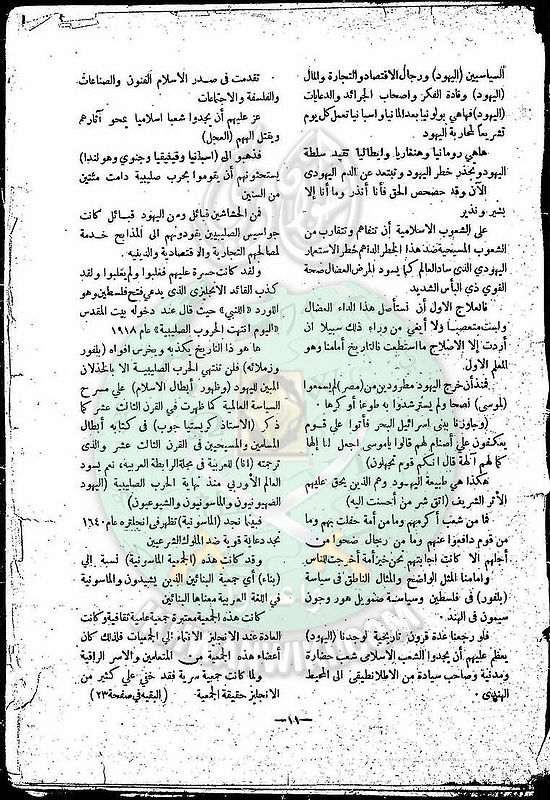 السياسيين (اليهود) ورجال الاقتصاد والتجارة والمال
(اليهود) وقادة الفكر واصحاب الجرائد والدعايات
(اليهود) فهاهي بولونيا بعد المانيا واسبانيا تعمل كل يوم
تشريعاً لمحاربة اليهود
هاهي رومانيا وهنغاريا وايطاليا تقيد سلطة
اليهود وتحذر خطر اليهود وتبتعد عن الدم اليهودى
الآن وقد حصحص الحق فأنا أنذر وما أنا إلا
بشير ونذير
على الشعوب الاسلامية أن تتفاهم وتتقارب من
الشعوب المسيحية ضد هذا الخطر الداهم خطر الاستعمار
اليهودي الذى ساد العالم كما يسود المرض العضال صحة
القوي ذي البأس الشديد
فالعلاج الاول أن نستأصل هذا الداء العضال
ولست متعصباً ولا أبغي من وراء ذلك سبيلا ان
أردت إلا الاصلاح ما استطعت فالتاريخ أمامنا وهو
المعلم الاول
فمنذ أن خرج اليهود مطرودين من (مصر) لم يسمعوا
(لموسى) نصحا ولم يسترشدوا به طوعا أو كرها
(وجاوزنا ببنى اسرائيل البحر فأتوا على قوم
يعكفون علي أصنام لهم قالوا ياموسى اجعل لنا إلها
كما لهم آلهة قال انكم قوم تجهلون)
هكذا هي طبيعة اليهود وهم الذين يحق عليهم
الأثر الشريف (اتق شر من أحسنت اليه)
فما من شعب أكرمهم وما من أمة حفلت بهم وما
من قوم دافعوا عنهم وما من رجال ضحوا من
أجلهم الا كانت اجابتهم نحن خير أمة أخرجت للناس
وامامنا المثل الواضح والمثال الناطق فى سياسة
(بلفور) فى فلسطين وسياسة صمويل هور وجون
سيمون فى الهند
فلو رجعنا عدة قرون تاريخية لوجدنا (اليهود)
يعظم عليهم أن يجدوا الشعب الاسلامى شعب حضارة
ومدنية وصاحب سيادة من الاطلانطيق الى المحيط
الهندى
تقدمت فى صدر الأسلام الفنون والصناعات
والفلسفة والاجتماعات
عز عليهم أن يجدوا شعبا اسلاميا يمحو آثارهم
ويقتل الههم (العجل)
فذهبوا الى (اسبانيا وقيفيقيا وجنوي وهولندا)
يستحثونهم أن يقوموا بحرب صليبية دامت مئتين
من السنين
فمن الحشاشين قبائل ومن اليهود قبائل كانت
جواسيس الصليبيين يقودونهم الى المذابح خدمة
لمصالحهم التجارية والاقتصادية والدينيه
ولقد كانت حسرة عليهم فغلبوا ولم يغلبوا ولقد
كذب القائد الانجليزى الذى يدعي فتح فلسطين وهو
اللورد «اللنبي» حيث قال عند دخوله بيت المقدس
«اليوم انتهت الحروب الصليبية» عام ١٩١٨
ها هو ذا التاريخ يكذبه ويخرس افواه (بلفور
وزملائه) فلن تنتهى الحرب الصليبية الا بالخذلان
المبين لليهود (وظهور أبطال الاسلام) علي مسرح
السياسة العالمية كما ظهرت في القرن الثالث عشر كما
ذكر (الاستاذ كريستيا جوب) فى كتابه أبطال
المسلمين والمسيحيين فى القرن الثالث عشر والذى
ترجمته (أنا) للعربية فى مجلة الرابطة العربية، نعم يسود
العالم الأوربي منذ نهاية الحرب الصليبية (اليهود
الصهيونيون والماسونيون والشيوعيون)
فبينما نجد (الماسونية) تظهر فى انجلترة عام ١٦٤٠
نجد دعاية قوية ضد الملوك الشرعيين
وقد كانت هذه (الجمعية الماسونية) نسبة الي
(بناء) أي جمعية البنائين الذين يشيدون والماسونية
فى اللغة العربية معناها البنائين
كانت هذه الجمعية معتبرة جمعية علمية ثقافية وكانت
العادة عند الانجليز الانتماء الى الجمعيات فلذلك كان
أعضاء هذه الجمعية من المتعلمين والاسر الراقية
ولما كانت جمعية سرية فقد خفي على كثير من
الانجليز حقيقة الجمعية (البقيه في صفحة ٢٣)
— ١١ —